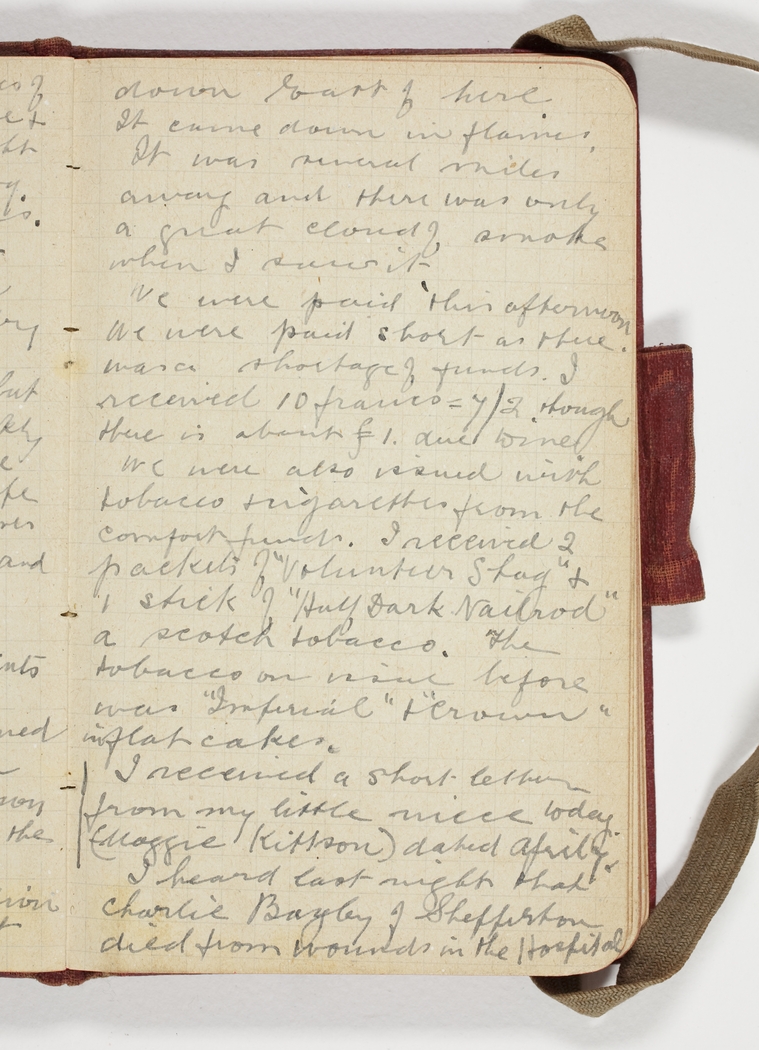 down East of here
It came down in flames.
It was several miles
away and there was only
a great cloud of smoke
when I saw it
We were paid this afternoon
We were paid short as there
was a shortage of funds. I
received 10 francs = 7/2 though
there is about £1. due
We were also issued with
tobacco & sigarettes from the
comfort funds. I received 2
packets of "Volunteer Shag" &
1 stick of "Half Dark Nailrod"
a scotch tobacco. The
tobacco on issue before
was "Imperial" & "Crown"
in flat cakes.
I received a short letter
from my little niece today
(Maggie Kittson) dated April
I heard last night that
Charlie Bayley of Shefferton
died from wounds in the Hospital
es of
e &
ht
y.
s.
ry
but
e
fe
and
nts
ned
the